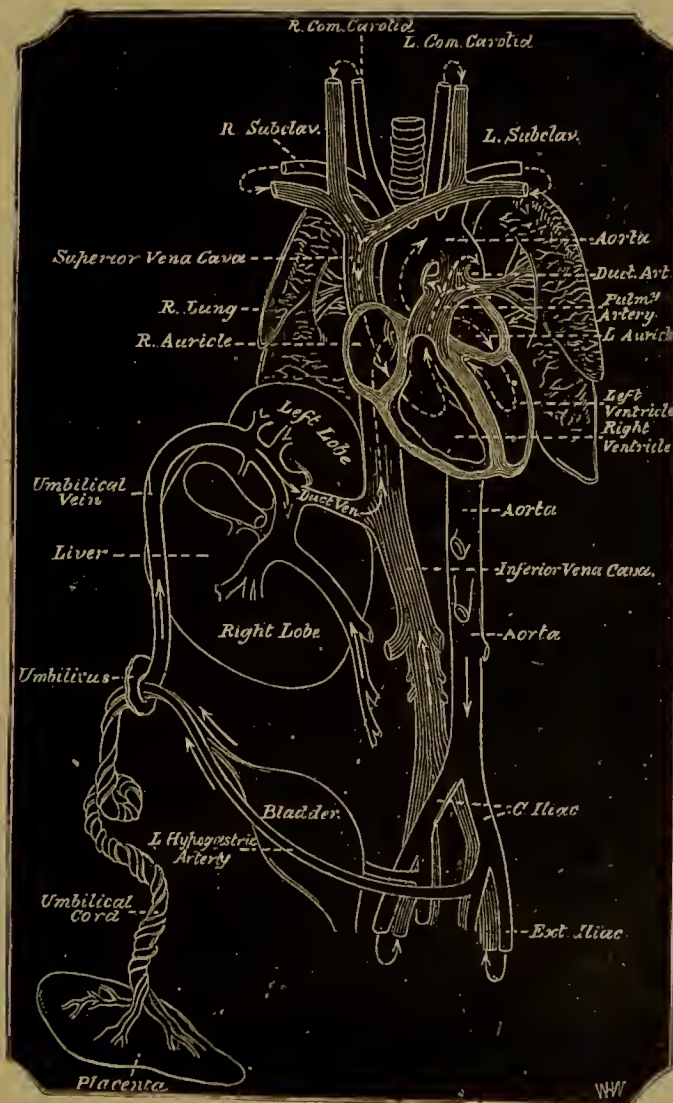 R. Com. Carotid
L. Com. Carotid
R. Subclav.
L. Subclav.
Superior Vena Cava
Aorta
Duct. Art.
R. Lung
Pulmy
Artery.
R. Auricle
L Auricle
Left
Ventricle
Right
Ventricle
Left Lobe
Umbilical
Vein
Duct Ven.
Aorta
Liver
Inferior Vena Cava.
Right Lobe
Aorta
Umbilicus
Bladder
C. Iliac
L Hypogastric
Artery
Umbilical
Cord
Ext. Iliac
Placenta
WW